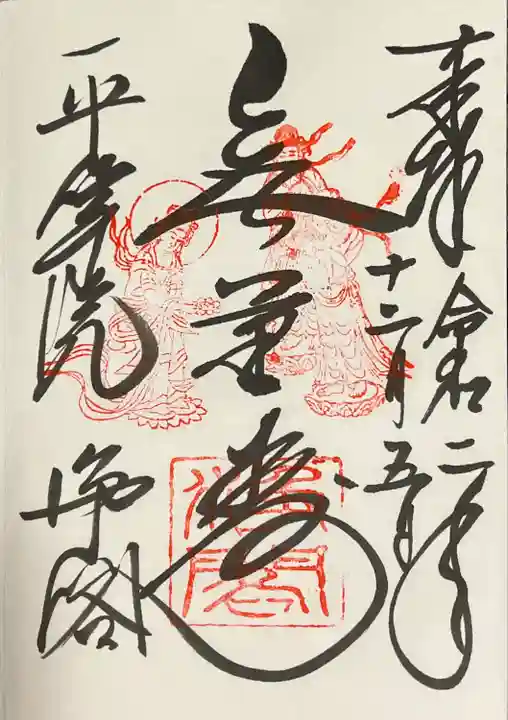 奉拝 令和二年
十二月五日
無量寿
平等院 浄閣